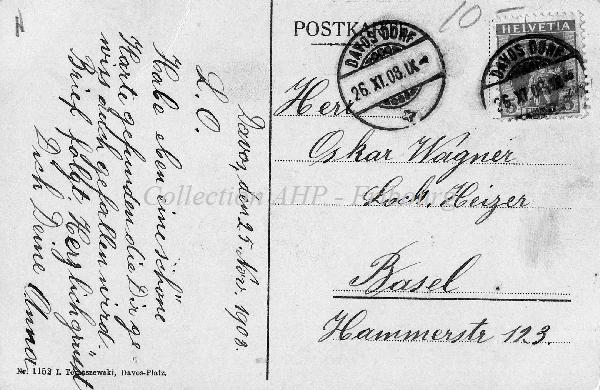 POSTKA
10
HELVETIA
5
DAVOS DORF
26.XI.08.IX
DAVOS DORF
26.XI.08.IX
Herr
Oskar Wagner
Lock. Heizer
Basel
Hammerstr 123.
Davos, den 25 Nov. 1908.
L. O.
Habe eben eine schöne
Karte gefunden die Dir ge-
wiss auch gefallen wird.
Brief folgt Herzlich grüsst
Dich Deine Anna
Collection AHP - 
No. 1152 I. Tomaszewski, Davos-Platz.